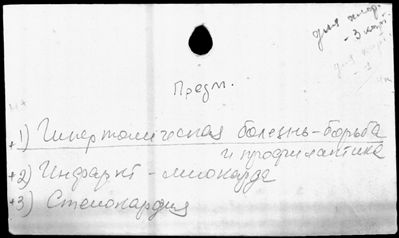 для
- 3 карт.
Предм.
+1) Гипертоническая болезнь - борьба
и профилактика
+2) Инфаркт - миокарда
+3) Стенокардия